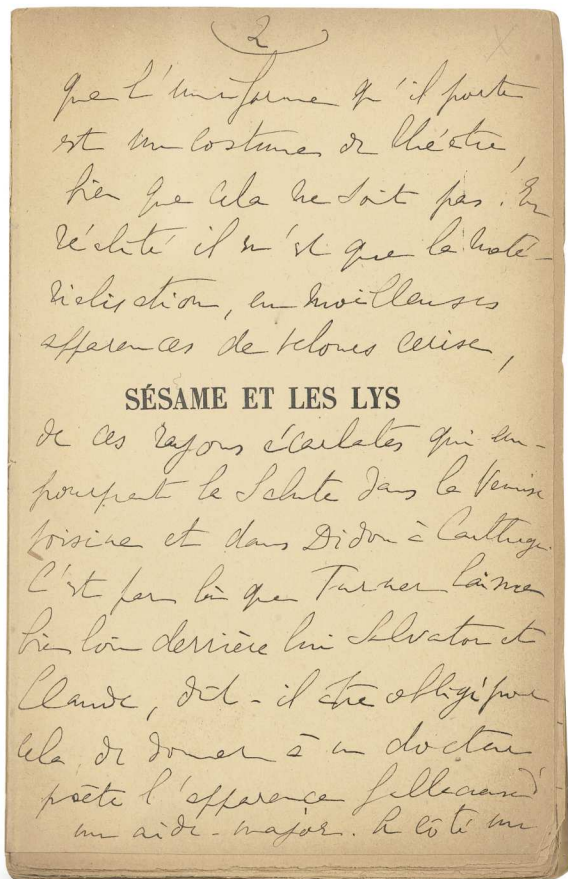 2
que l'uniforme qu'il porte
est un costume de théâtre,
bien que cela ne soit pas. En
réalité il n'est que la maté-
rialisation, en moelleuses
apparences de velours cerise,
SÉSAME ET LES LYS
de ces rayons écarlates qui em-
pourprent la Salute dans la Venise
voisine et dans Didon à Carthage.
C'est par là que Turner laisse
bien loin derrière lui Salvator et
Claude, dût-il être obligé pour
cela de donner à un docteur
poète l'apparence fallacieuse d'
un aide-major. A côté un